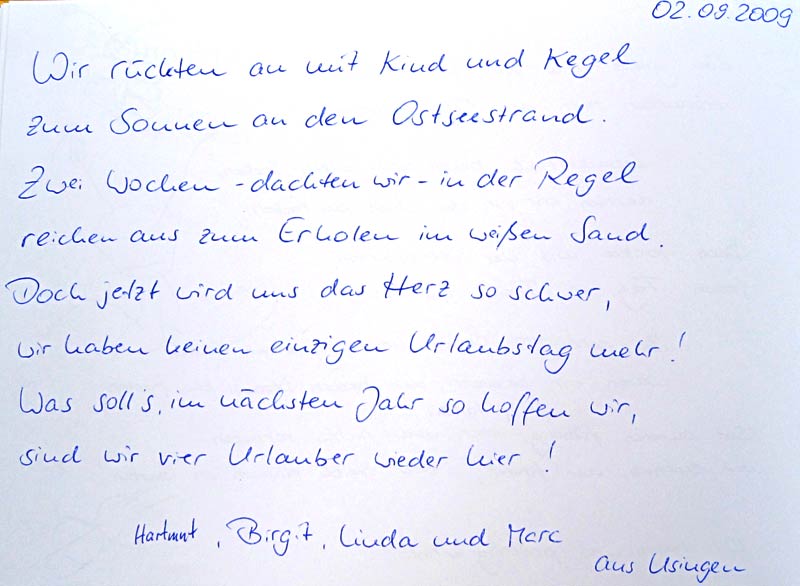 02.09.2009
Wir rückten an mit Kind und Kegel
zum Sonnen an den Ostseestrand.
Zwei Wochen - dachten wir - in der Regel
reichen aus zum Erholen im weißen Sand.
Doch jetzt wird uns das Herz so schwer,
wir haben keinen einzigen Urlaubstag mehr!
Was soll's, im nächsten Jahr so hoffen wir,
sind wir vier Urlauber wieder hier!
Hartmut, Birgit, Linda und Marc
aus Usingen